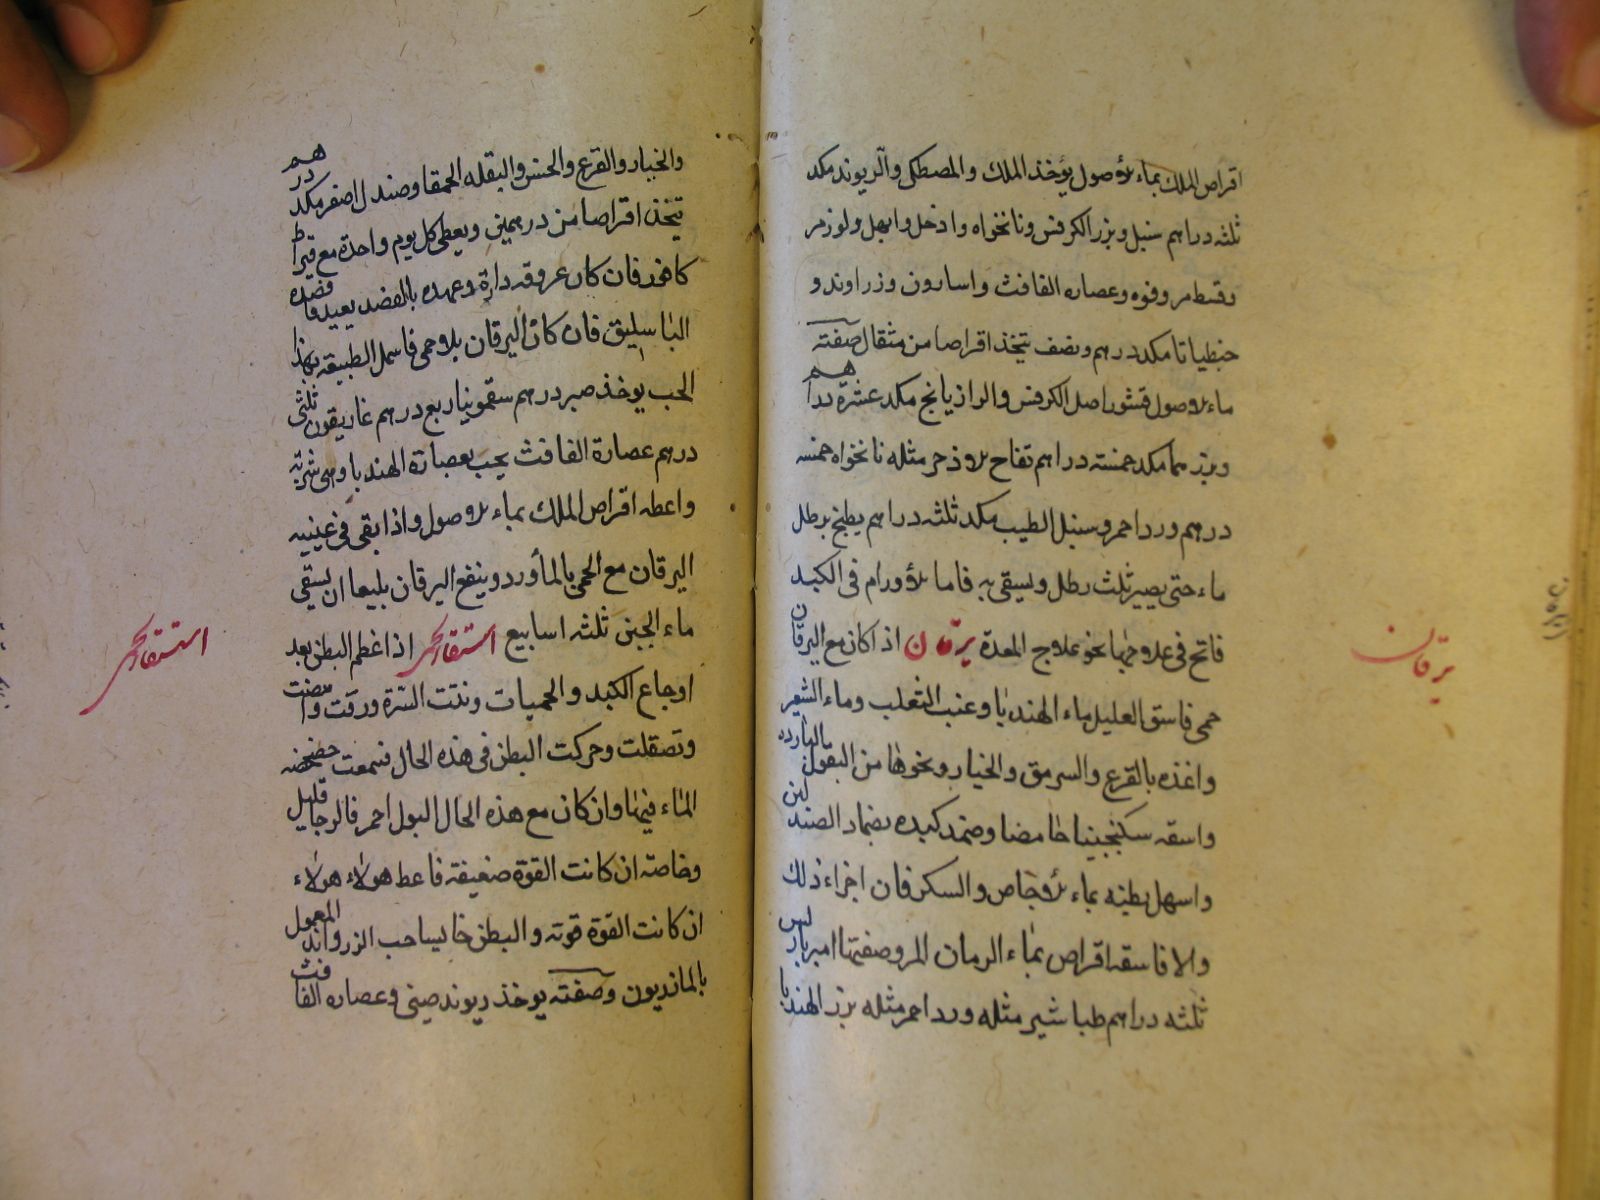 اقراص الملك بماء الأصول يؤخذ الملك والمصطكى والريوند مكد
ثلثه دراهم سنبل وبزر الكرفس ونانخواه واذخر وابهل ولوز مر
وقسط مر وفوه وعصاره الغافث واسارون وزراوند و
جنطيانا مكد درهم ونصف يتخذ اقراصا من مثقال صفته
ماء الاصول قشور اصل الكرفس والرازيانج مكد عشرة دراهم
وبزرهما مكد خمسته دراهم تفاح الاذخر مثله نانخواه خمسه
درهم ورد احمر وسنبل الطيب مكد ثلثه دراهم يطبخ برطل
ماء حتى يصير ثلث رطل ويسقى به فاما الأورام فى الكبد
فانح فى علاجها نحو علاج المعدة يرقان اذا كان مع اليرقان
يرقان
حمى فاسق العليل ماء الهندبا وعنب الثعلب وماء الشعير
واغذه بالقرع والسرمق والخيار ونحوها من البقول الباردة
واسقه سكنجبينا حامضا وضمد كبده بضماد الصندلين
واسهل بطنه بماء الأجاص والسكر فان اجزاء ذلك
والا فاسقه اقراص بماء الرمان المر وصفتها امبرباريس
ثلثه دراهم طباشير مثله ورد احمر مثله بزر الهندبا
والخيار والقرع والخس والبقله الحمقا وصندل اصفر مكد درهم
يتخذ اقراصا من درهمين ويعطى كل يوم واحدة مع قيراط
كافور فان كان عروقه دارة وعهده بالفصد بعيد فافصده
الباسليق فان كان اليرقان بلا حمى فاسهل الطبيعه بهذا
الحب يوخذ صبر درهم سقمونيا ربع درهم غاريقون ثلثى
درهم عصارة الغافث يحبب بعصارة الهندبا وهى شربة
واعطه اقراص الملك بماء الاصول واذا بقى فى عينيه
اليرقان مع الحمى بالماورد وينفع اليرقان بليعا ان يسقى
ماء الجبن ثلثه اسابيع استسقاء لحمى اذا عظم البطن بعد
استسقاء لحمى
اوجاع الكبد والحميات ونتت السرة ورقت وابيضت
وتصقلت وحركت البطن فى هذه الحال فسمعت خضخضه
الماء فيها وان كان مع هذه الحال البول احمر فالرجا قليل
وخاصة ان كانت القوة ضعيفة فاعط هولاء هولاء
ان كانت القوة قوته والبطن خاليا حب الزراوند المعمول
بالمازريون وصفته يوخذ ريوند صينى وعصاره الغافث